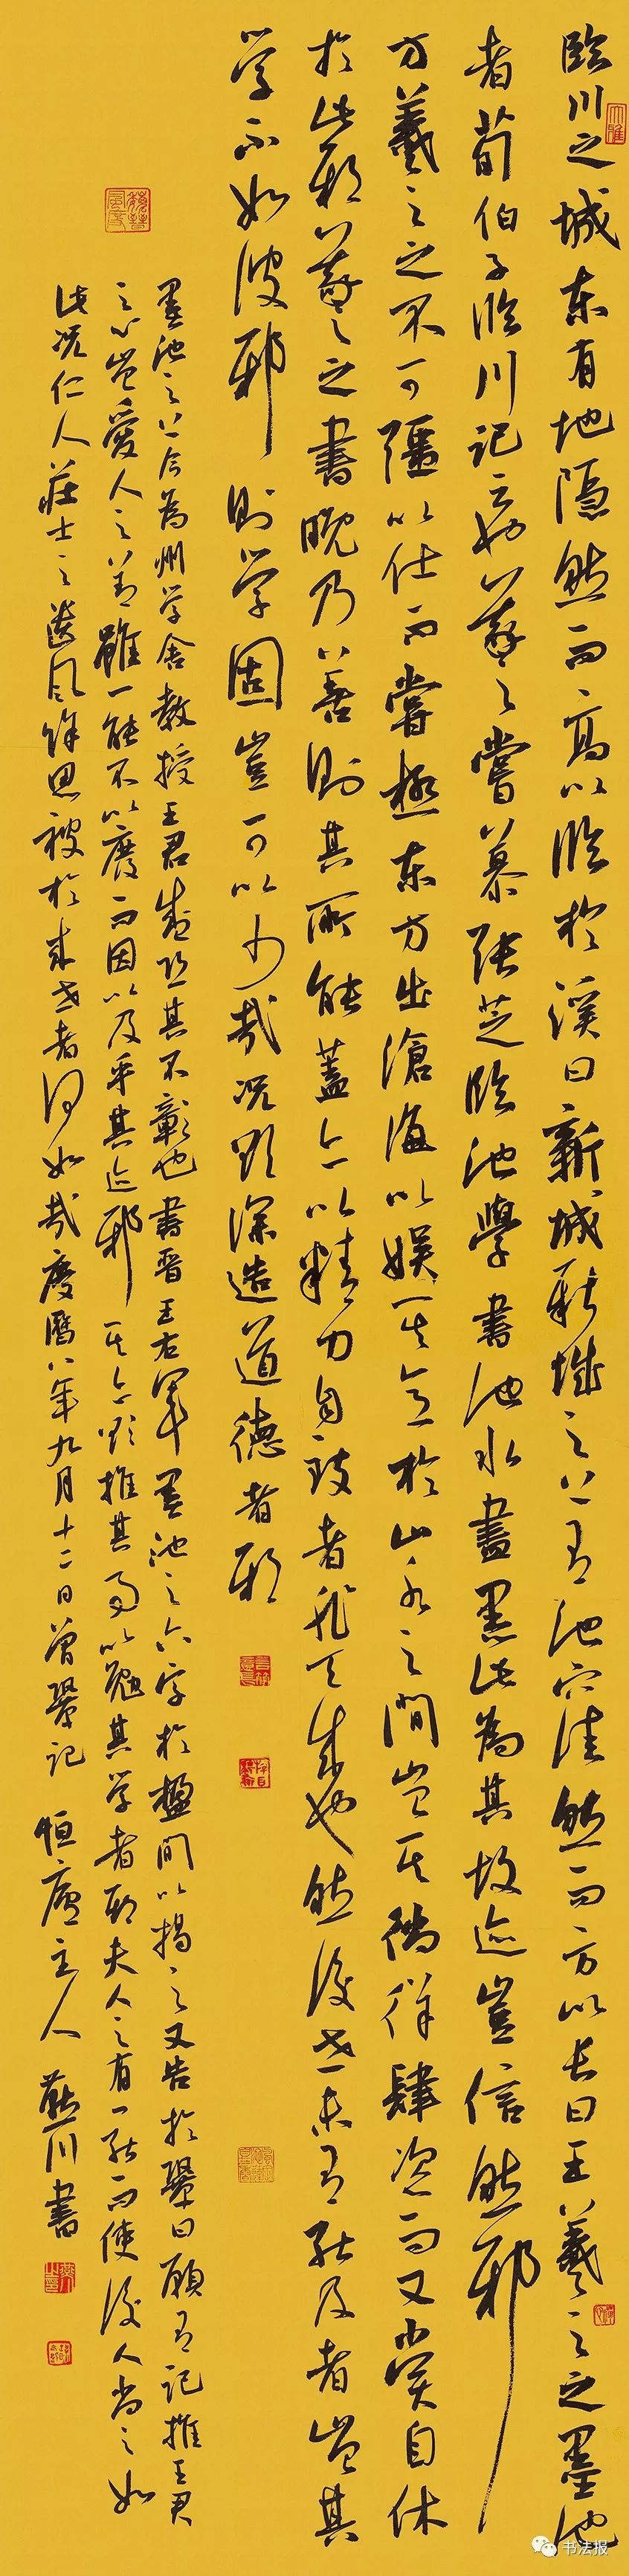 臨川之城東有地隱然而高以臨於溪曰新城新城之上有池窪然而方以長曰王羲之之墨池
者荀伯子臨川記云也羲之嘗慕張芝臨池學書池水盡黑此為其故迹豈信然邪
方羲之之不可強以仕而嘗極東方出滄海以娛其意於山水之間豈其徜徉肆恣而又嘗自休
於此邪羲之之書晚乃善則其所能蓋亦以精力自致者非天成也然後世未有能及者豈其
學不如彼邪則學固豈可以少哉況欲深造道德者邪
墨池之上今為州學舍教授王君盛恐其不彰也書晉王右軍墨池之六字於楹間以揭之又告於鞏曰願有記推王君
之心豈愛人之善雖一能不以廢而因以及乎其迹邪其亦欲推其事以勉其學者邪夫人之有一能而使後人尚之如
此況仁人莊士之遺風餘思被於來世者何如哉慶曆八年九月十二日曾鞏記 恒廬主人 燕川書
大雅
书法报